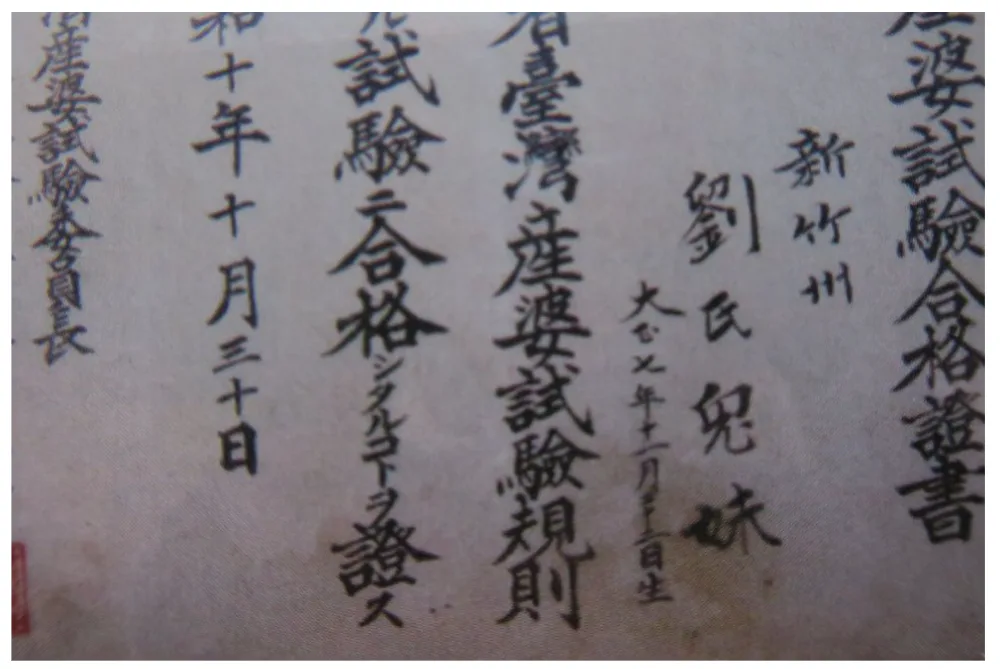 産婆試驗合格證書
新竹州
劉氏兒妹
大正七年十一月十二日生
者臺灣産婆試驗規則
試驗ニ合格シタルコトヲ證ス
和十年十月三十日
産婆試驗委員長